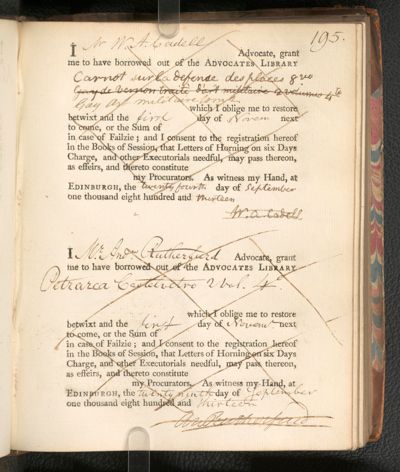 195.
I Mr W. A. Cadell Advocate, grant
me to have borrowed out of the ADVOCATES LIBRARY
Carnot sur la defense des places 8vo
Gay de Vernon traité d'art militaire 2 volumes 4to
Gay militaire
which I oblige me to restore
betwixt and the first day of Novem next
to come, or the Sum of
in case of Failzie; and I consent to the registration hereof
in the Books of Session, that Letters of Horning on six Days
Charge, and other Executorials needful, may pass thereon,
as effeirs, and thereto constitute
my Procurators. As witness my Hand, at
EDINBURGH, the twenty fourth day of September
one thousand eight hundred and thirteen
W. A. Cadell
I Mr Andw Rutherfurd Advocate, grant
me to have borrowed out of the ADVOCATES LIBRARY
Petrarca Castelvetro 2 vol. 4o
which I oblige me to restore
betwixt and the first day of Novemr next
to come, or the Sum of
in case of Failzie; and I consent to the registration hereof
in the Books of Session, that Letters of Horning on six Days
Charge, and other Executorials needful, may pass thereon,
as effeirs, and thereto constitute
my Procurators. As witness my Hand, at
EDINBURGH, the twenty ninth day of September
one thousand eight hundred and thirteen
And Rutherfurd